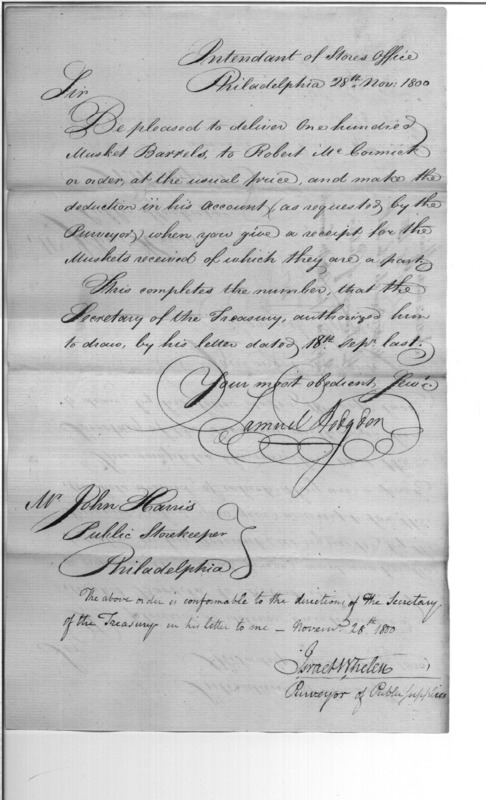 Intendant of Stores Office
Philadelphia 28th Nov: 1800
Sir
Be pleased to deliver One hundred
Musket Barrels, to Robert McCormick
or order, at the usual price, and make the
deduction in his account (as requested by the
Purveyor) when you give a receipt for the
Muskets received of which they are a part.
This completes the number, that the
Secretary of the Treasury, authorized him
to draw, by his letter dated 18th Sepr last.
Your most obedient Serv.
Samuel Hodgdon
Mr John Harris
Public Storekeeper
Philadelphia
The above order is conformable to the directions of the Secretary
of the Treasury in his letter to me – Novemr 28th 1800
Israel Whelen
Purveyor of Public Supplies